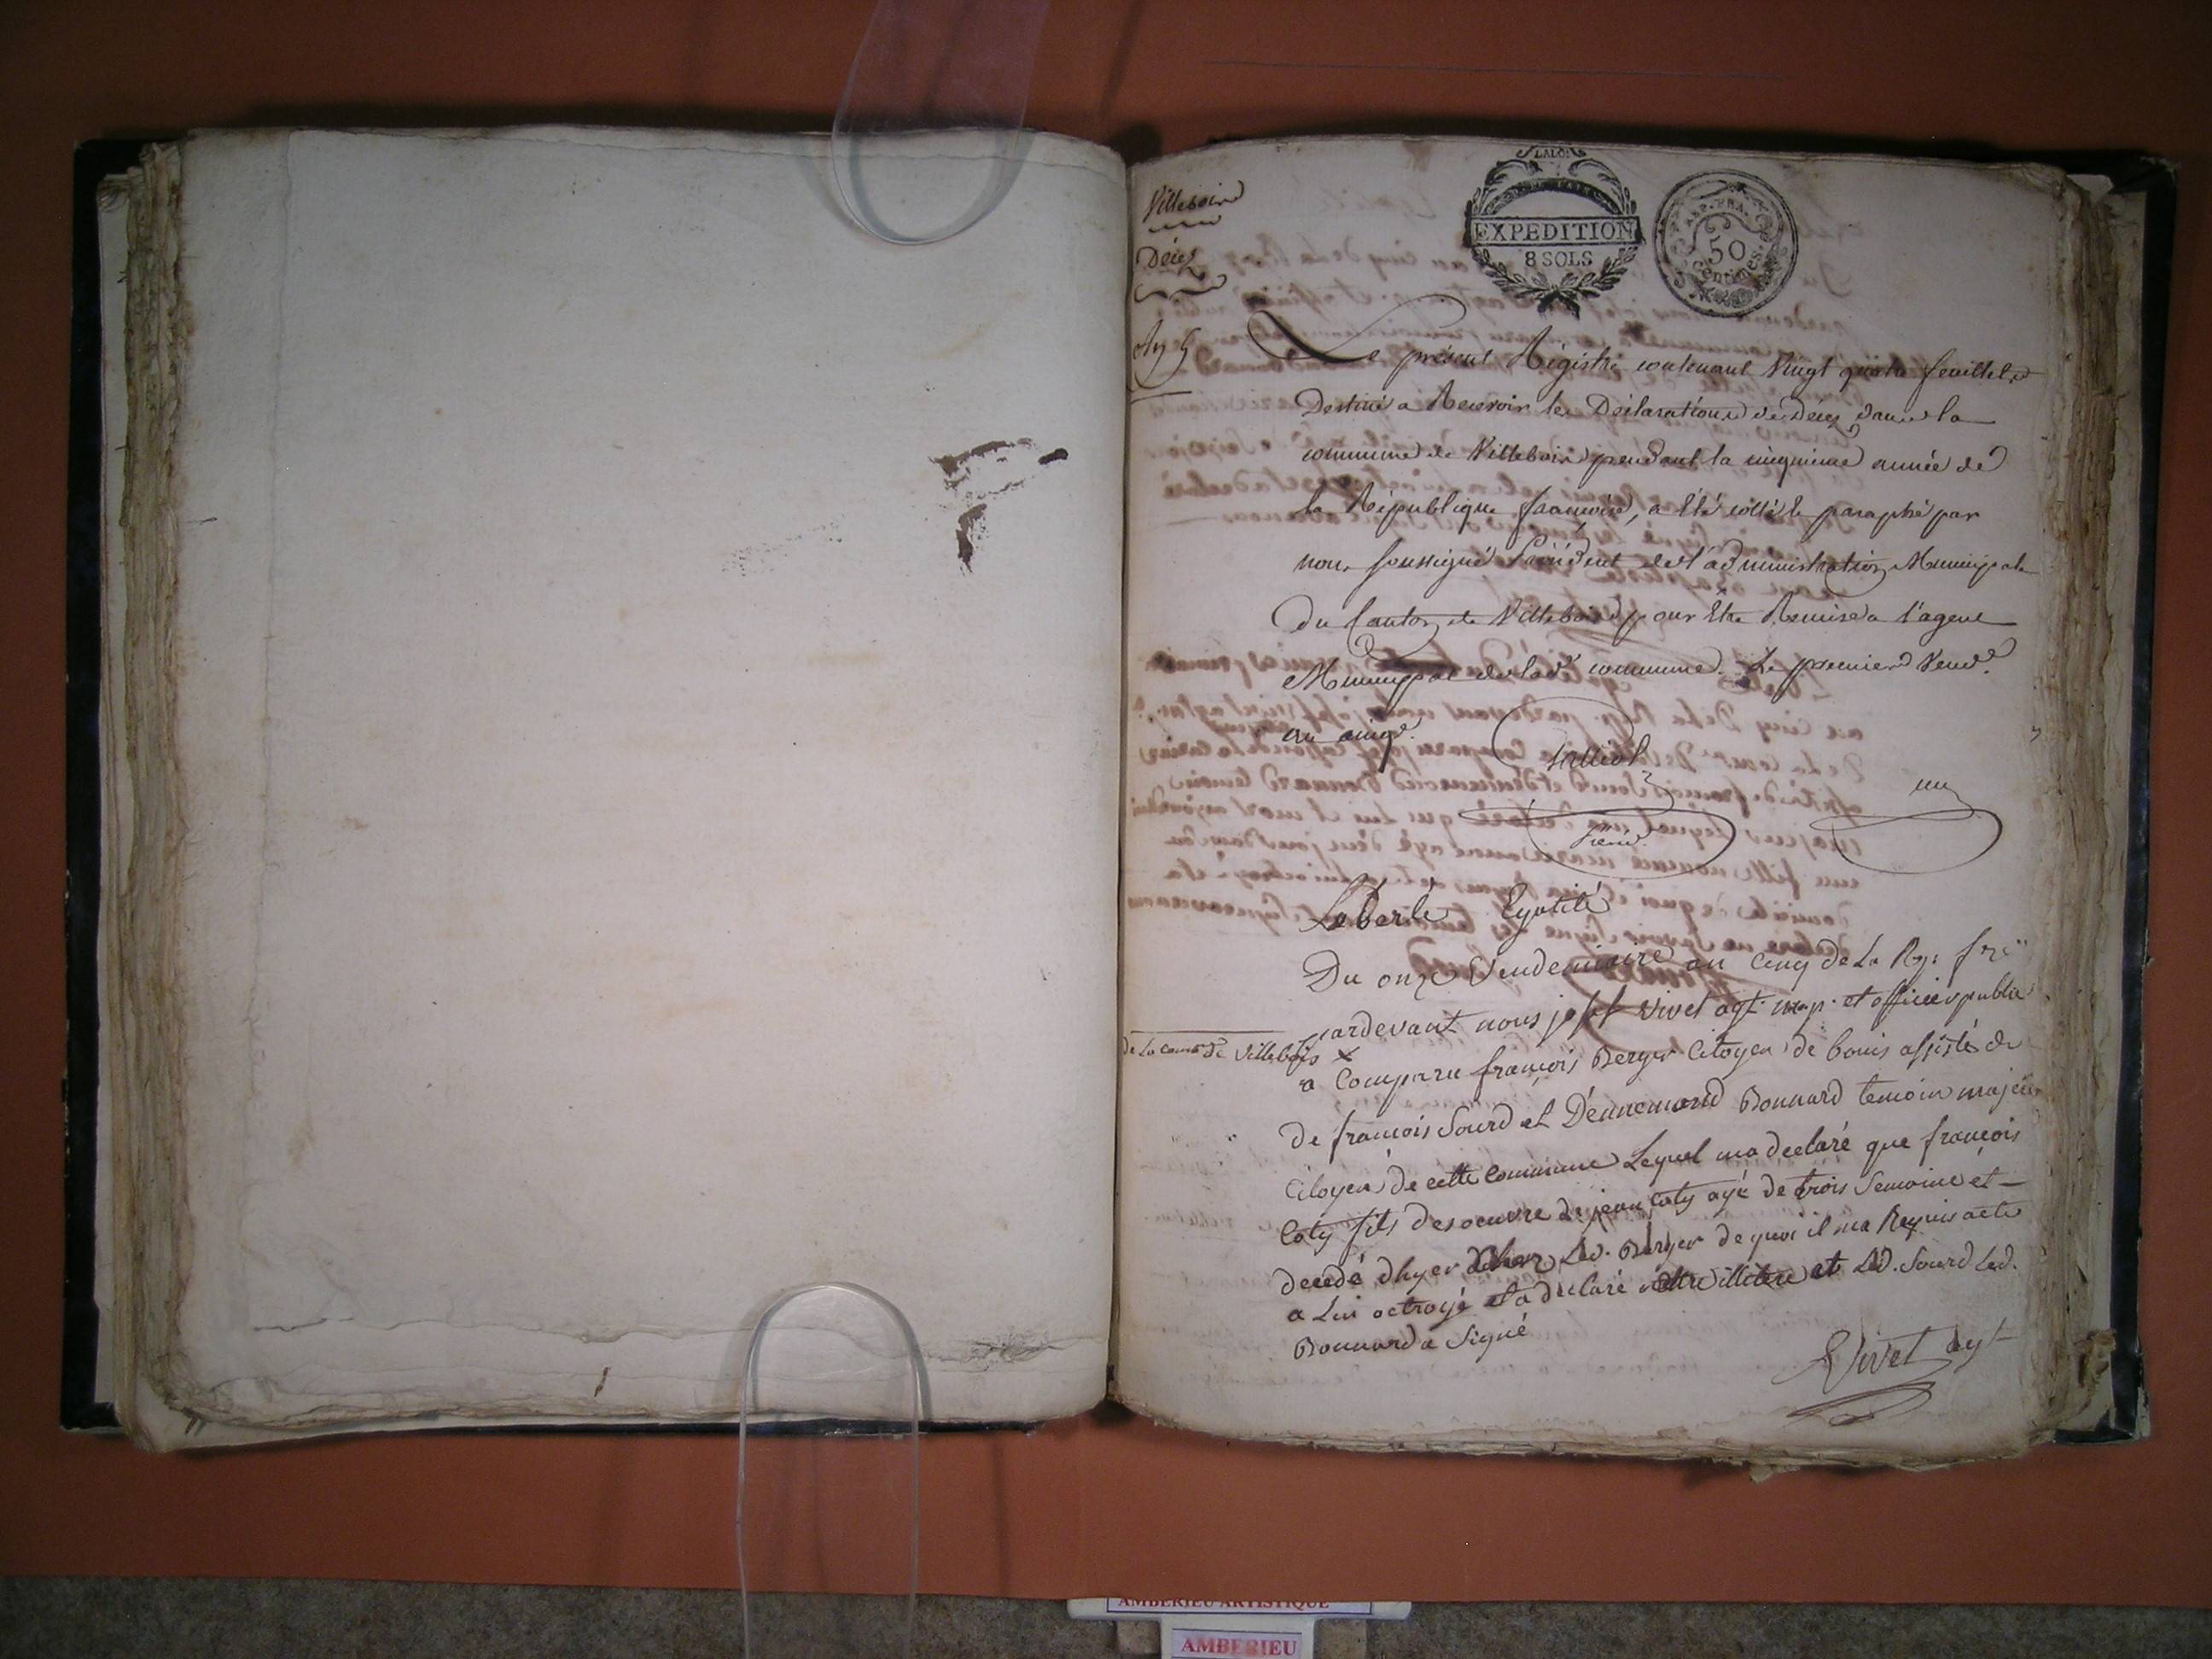 Villebois
Décès
An 5
LA LOI
EXPEDITION
8 SOLS
REP. FRA.
50
Centimes
Le présent Régistre contenant Vingt quatre feuillets
Destiné a Recevoir les Déclarations de Décès dans la
commune de Villebois pendant la cinquieme année de
la République françoise, a Eté cotté et paraphé par
nous soussigné Président de l'administration Municipale
Du Canton de Villebois pour Etre Remise a l'agent
Municipal de lad.e commune. Le premier Vend.re
an cinq.
un
Liberté Egalité
Du onze Vendemiaire an cinq de La Rep. fr.se
pardevant nous josef Vivet agt. mp. et officier public
de La comm.e de Villebois x
a Comparu françois Berger Citoyen de bouis assistés de
de françois Sourd et D'ennemond Bonnard temoins majeurs
Citoyen de cette Commune Lequel ma declaré que françois
Coty fils desoeuvre de jean Coty agé de trois Semaine et
decedé dhyer chez Led. Berger de quoi il ma Requis acte
a Lui octroyé et a declaré etre illitere et Led. Sourd Led.
Bonnard a Signé
Vivet agt
AMBERIEU ARTISTIQUE
AMBERIEU